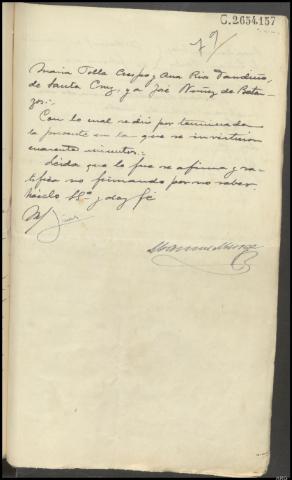 C.2654.157
79
Maria Tella Crespo y Ana Rio Pandiño,
de Santa Cruz, y a José Nuñez de Betan-
zos:.
Con lo cual se dió por terminada
la presente en la que se invirtieron
cuarenta minutos:.
Leida que le fue se afirma y ra-
tifica no firmando por no saber.
hácelo Sª y doy fé